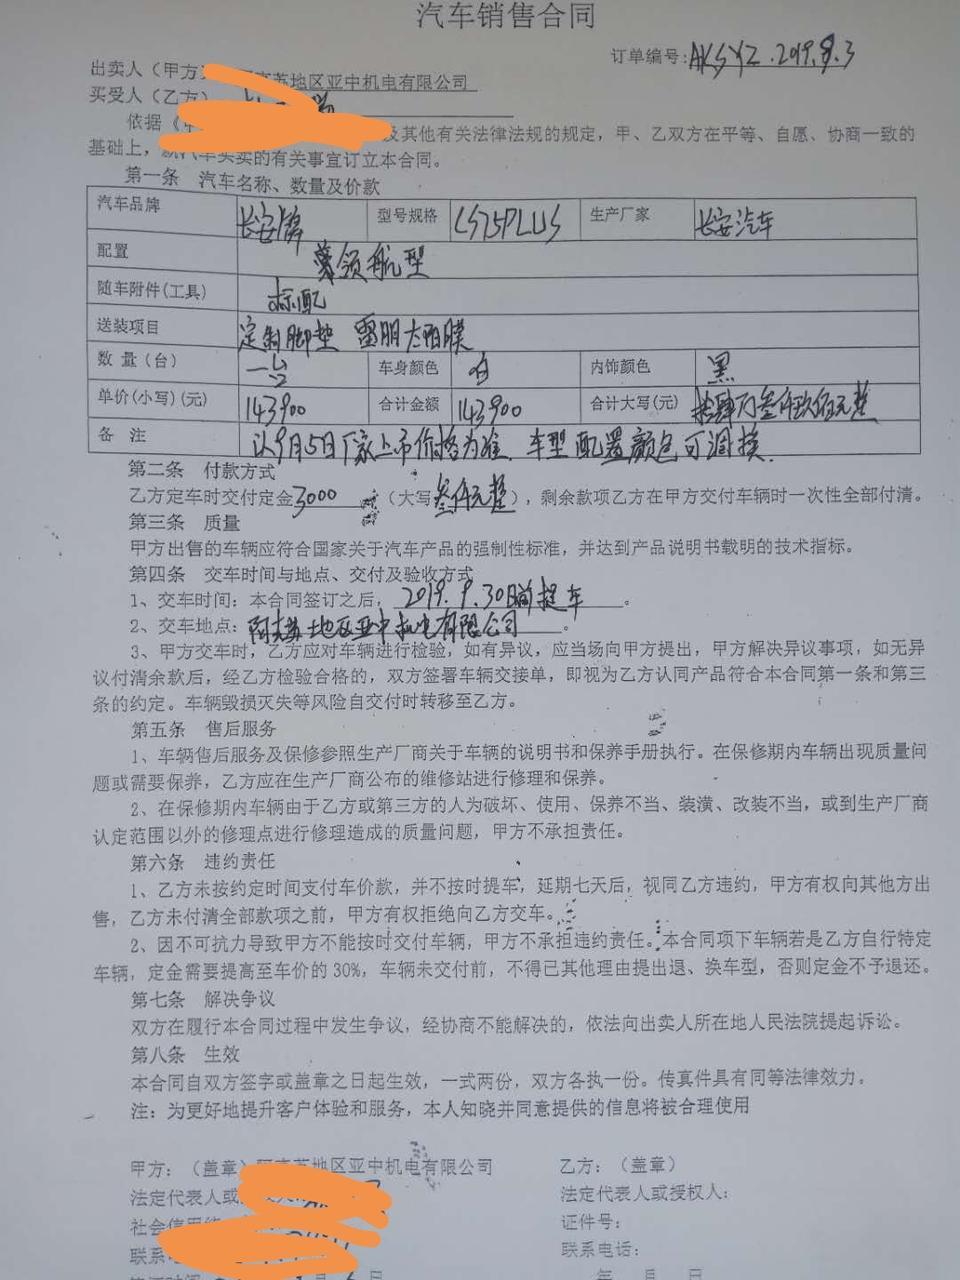 汽车销售合同
订单编号:AKSYZ.2019.9.3
出卖人（甲方 克苏地区亚中机电有限公司
买受人（乙方）
依据《 及其他有关法律法规的规定，甲、乙双方在平等、自愿、协商一致的
基础上，就汽车买卖的有关事宜订立本合同。
第一条 汽车名称、数量及价款
汽车品牌 长安牌 型号规格 CS75PLUS 生产厂家 长安汽车
配置 领航型
随车附件(工具) 标配
送装项目 定制脚垫 雷朋太阳膜
数量（台） 一台 车身颜色 白 内饰颜色 黑
单价(小写)(元) 143900 合计金额 143900 合计大写(元) 拾肆万叁仟玖佰元整
备 注 以9月5日厂家上市价格为准 车型配置颜色可调换.
第二条 付款方式
乙方定车时交付定金3000（大写叁仟元整），剩余款项乙方在甲方交付车辆时一次性全部付清。
第三条 质量
甲方出售的车辆应符合国家关于汽车产品的强制性标准，并达到产品说明书载明的技术指标。
第四条 交车时间与地点、交付及验收方式
1、交车时间：本合同签订之后，2019.9.30日前提车。
2、交车地点：阿克苏地区亚中机电有限公司。
3、甲方交车时，乙方应对车辆进行检验，如有异议，应当场向甲方提出，甲方解决异议事项，如无异
议付清余款后，经乙方检验合格的，双方签署车辆交接单，即视为乙方认同产品符合本合同第一条和第三
条的约定。车辆毁损灭失等风险自交付时转移至乙方。
第五条 售后服务
1、车辆售后服务及保修参照生产厂商关于车辆的说明书和保养手册执行。在保修期内车辆出现质量问
题或需要保养，乙方应在生产厂商公布的维修站进行修理和保养。
2、在保修期内车辆由于乙方或第三方的人为破坏、使用、保养不当、装潢、改装不当，或到生产厂商
认定范围以外的修理点进行修理造成的质量问题，甲方不承担责任。
第六条 违约责任
1、乙方未按约定时间支付车价款，并不按时提车，延期七天后，视同乙方违约，甲方有权向其他方出
售，乙方未付清全部款项之前，甲方有权拒绝向乙方交车。
2、因不可抗力导致甲方不能按时交付车辆，甲方不承担违约责任。本合同项下车辆若是乙方自行特定
车辆，定金需要提高至车价的30%，车辆未交付前，不得已其他理由提出退、换车型，否则定金不予退还。
第七条 解决争议
双方在履行本合同过程中发生争议，经协商不能解决的，依法向出卖人所在地人民法院提起诉讼。
第八条 生效
本合同自双方签字或盖章之日起生效，一式两份，双方各执一份。传真件具有同等法律效力。
注：为更好地提升客户体验和服务，本人知晓并同意提供的信息将被合理使用
甲方：（盖章）阿克苏地区亚中机电有限公司 乙方：（盖章）
法定代表人或 法定代表人或授权人：
社会信用 证件号：
联系 联系电话：
月 日 年 月 日